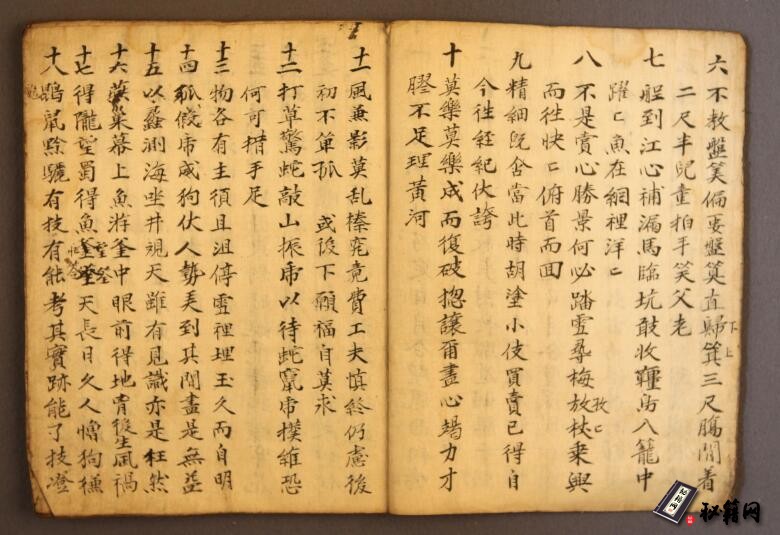 六不教盤筭偏要盤筭直歸箕三尺膓閒着
二尺半兒童拍手笑父老
七 舡到江心補漏馬臨坑敢收韁鳥入籠中
躍〻魚在網裡洋〻
八 不是賣心勝景何必踏雪尋梅放杖乘興
而徃快〻俯首而回
孜〻
九 精細既舍當此時胡塗小伎買賣已得自
今徃經紀伏誇
十 莫樂莫樂成而復破揔讓爾盡心竭力才
膠不足理黃河
十一風兼影莫乱搸究竟費工夫慎終仍慮後
初不箄孤 或後下願福自莫求
十二 打草驚蛇敲山振虎以待蛇竄虎撲維恐
何可措手足
十三 物各有主湏且沮停雪裡埋玉久而自明
十四 狐假虎威狗仗人勢羙到其間盡是無益
十五以蠡測海坐井視天雖有見識亦是枉然
十六 巢幕上魚游釜中眼前得地胃後生風禍
十七 得隴望蜀得魚荃天長日久人憎狗
十八 鼯鼠黔驢有技有能考其實跡能了技
秘籍网